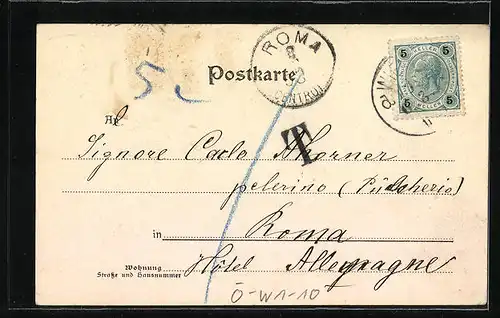 ROMA
CENTRO
5
5 HELLER 5
5 5
Postkarte
T
An
Signore Carlo
pelerino (Pulcherio)
in Roma
Wohnung
Straße und Hausnummer
Hôtel Allemagne
Ö-W1-10